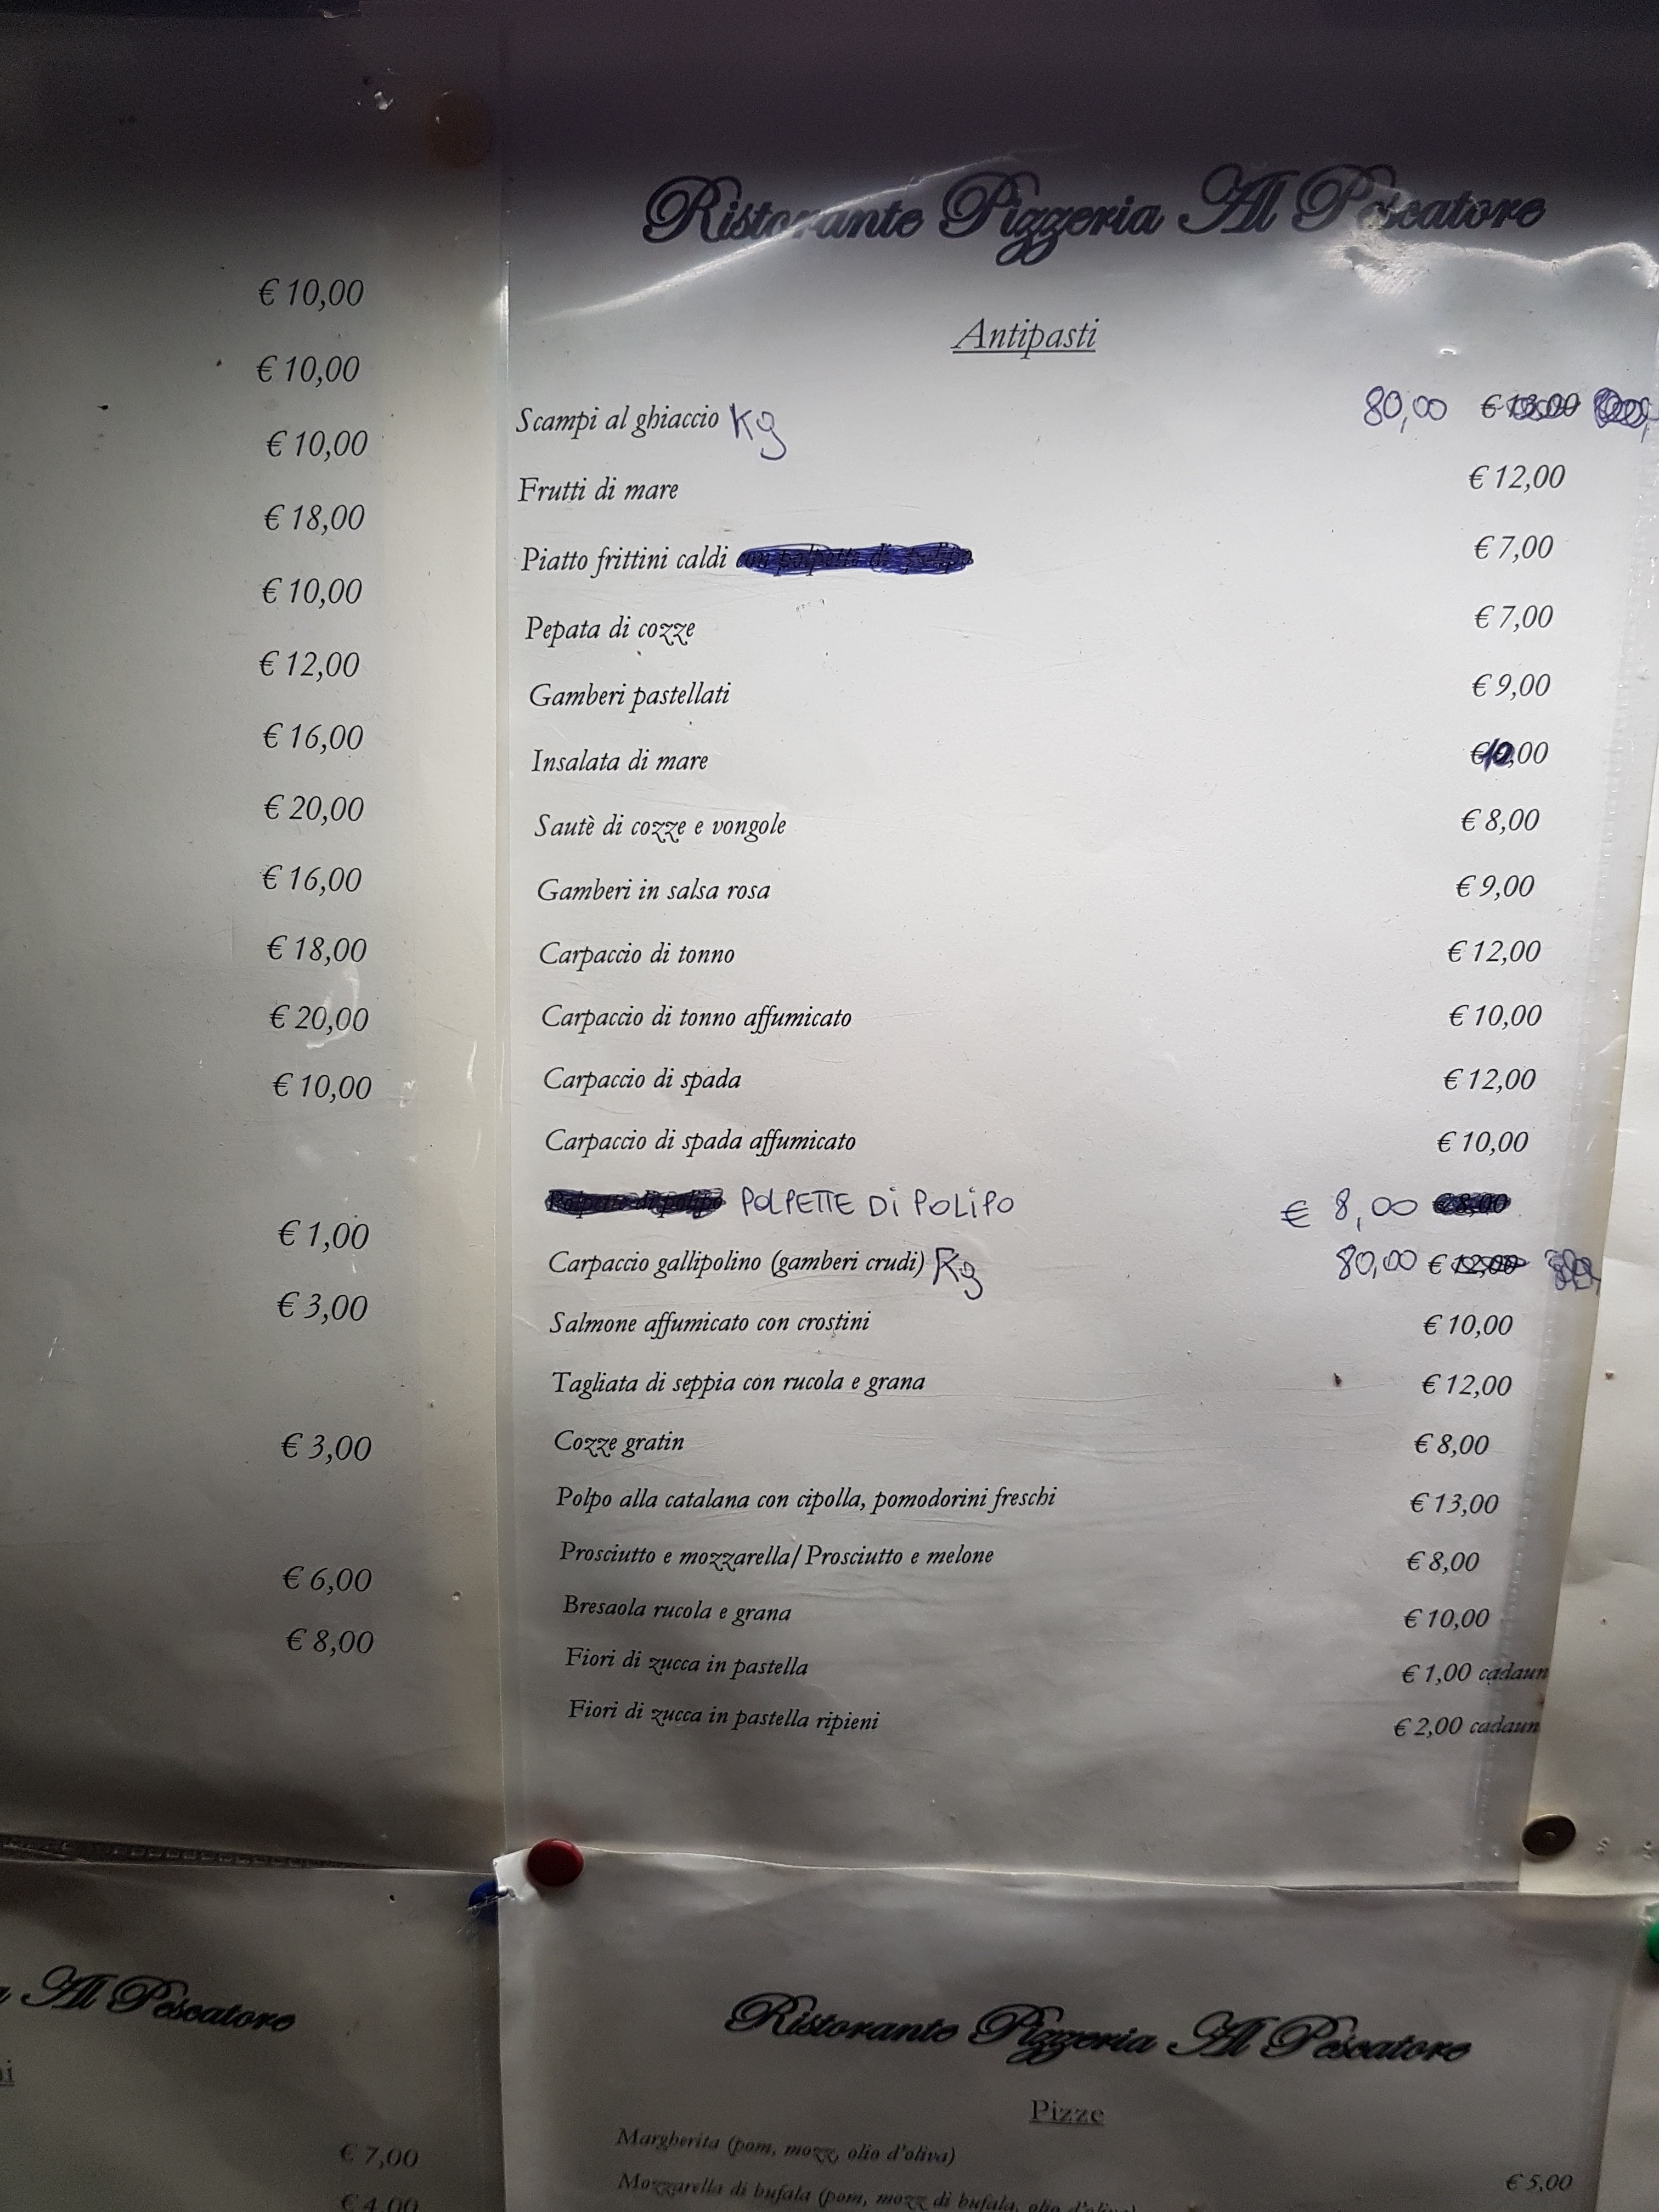 € 10,00
€ 10,00
€ 10,00
€ 18,00
€ 10,00
€ 12,00
€ 16,00
€ 20,00
€ 16,00
€ 18,00
€ 20,00
€ 10,00
€ 1,00
€ 3,00
€ 3,00
€ 6,00
€ 8,00
Ristorante Pizzeria Al Pescatore
Antipasti
Scampi al ghiaccio Kg 80,00 € 13,00
Frutti di mare € 12,00
Piatto frittini caldi con polpette di polipo € 7,00
Pepata di cozze € 7,00
Gamberi pastellati € 9,00
Insalata di mare € 10,00
Sautè di cozze e vongole € 8,00
Gamberi in salsa rosa € 9,00
Carpaccio di tonno € 12,00
Carpaccio di tonno affumicato € 10,00
Carpaccio di spada € 12,00
Carpaccio di spada affumicato € 10,00
POLPETTE Di POLiPO € 8,00 € 8,00
Carpaccio gallipolino (gamberi crudi) Kg 80,00 € 12,00
Salmone affumicato con crostini € 10,00
Tagliata di seppia con rucola e grana € 12,00
Cozze gratin € 8,00
Polpo alla catalana con cipolla, pomodorini freschi € 13,00
Prosciutto e mozzarella/ Prosciutto e melone € 8,00
Bresaola rucola e grana € 10,00
Fiori di zucca in pastella € 1,00 cadaun
Fiori di zucca in pastella ripieni € 2,00 cadaun
Al Pescatore
€ 7,00
€ 4,00
Ristorante Pizzeria Al Pescatore
Pizze
Margherita (pom, mozz, olio d'oliva) € 5,00
Mozzarella di bufala (pom, mozz di bufala, olio d'oliva)